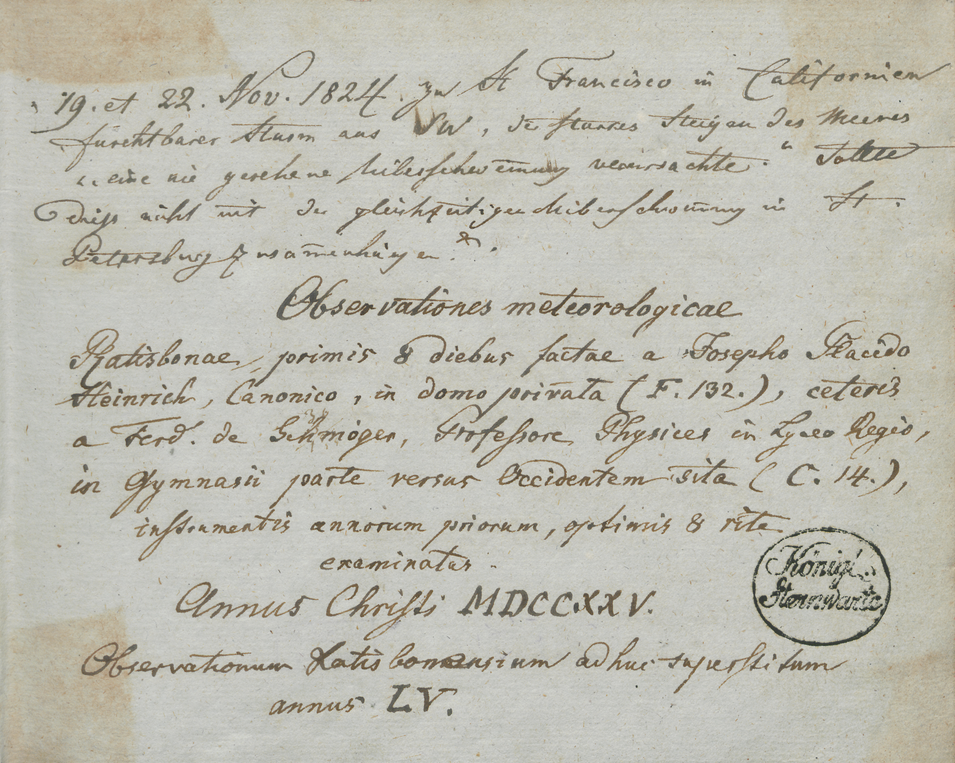 19. et 22. Nov. 1824. zu St Francisco in Californien
furchtbarer Sturm aus SW, der starkes Steigen des Meeres
„ eine nie gesehene Ueberschwem̅ung verursachte.“ Sollte
dieß nicht mit der gleichzeitigen Ueberschwem̅ung in St.
Petersburg zusam̅enhängen?
Observationes meteorologicae
Ratisbonae, primis 8 diebus factae a Josepho Placido
Heinrich, Canonico, in domo privata (F. 132.), ceteris
a Ferd. de Schmöger, Professore Physices in Lyceo Regio,
in Gymnasii parte versus Occidentem sita (C. 14.),
instrumentis annorum priorum, optimis & rite
examinatis.
Annus Christi MDCCXXV.
Königl.
Sternwarte
Observationum Ratisbonensium adhuc superstitum
annus LV.